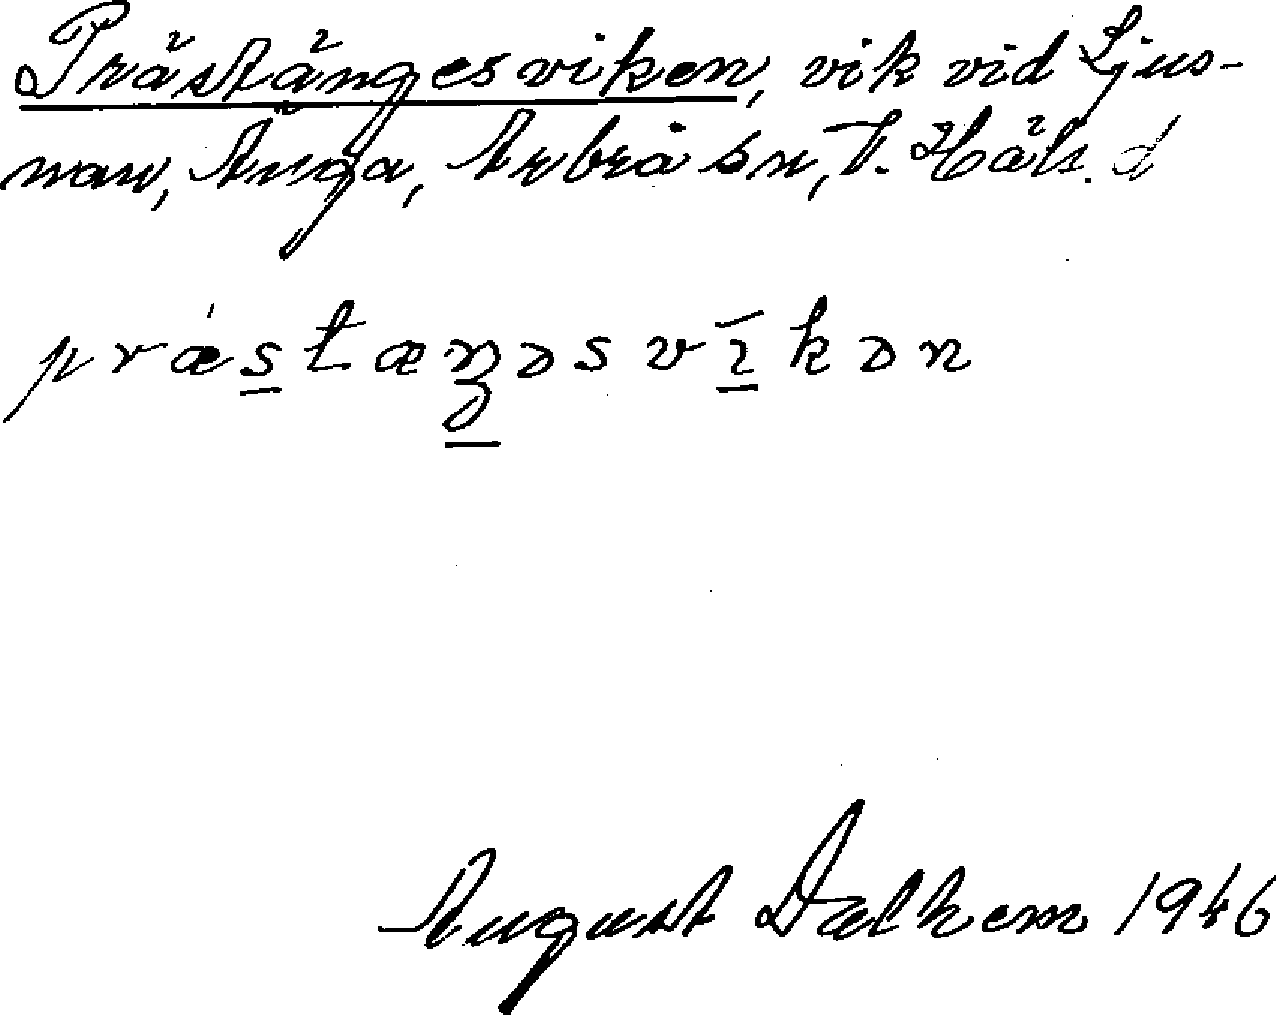 Prästängesviken, vik vid Ljus-
nan, Änga, Arbrå sn, V. Häls.
præstæŋəsvīkən
August Dalhem 1946